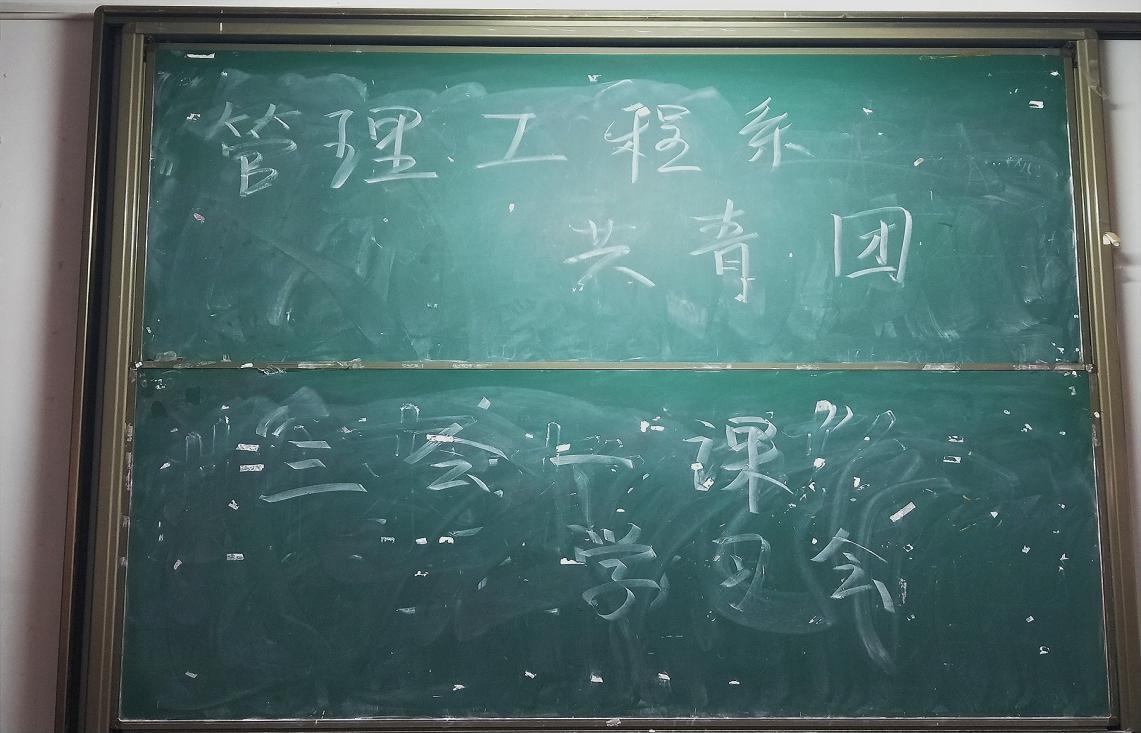 管理工程系
共青团
“三会一课”
学习会